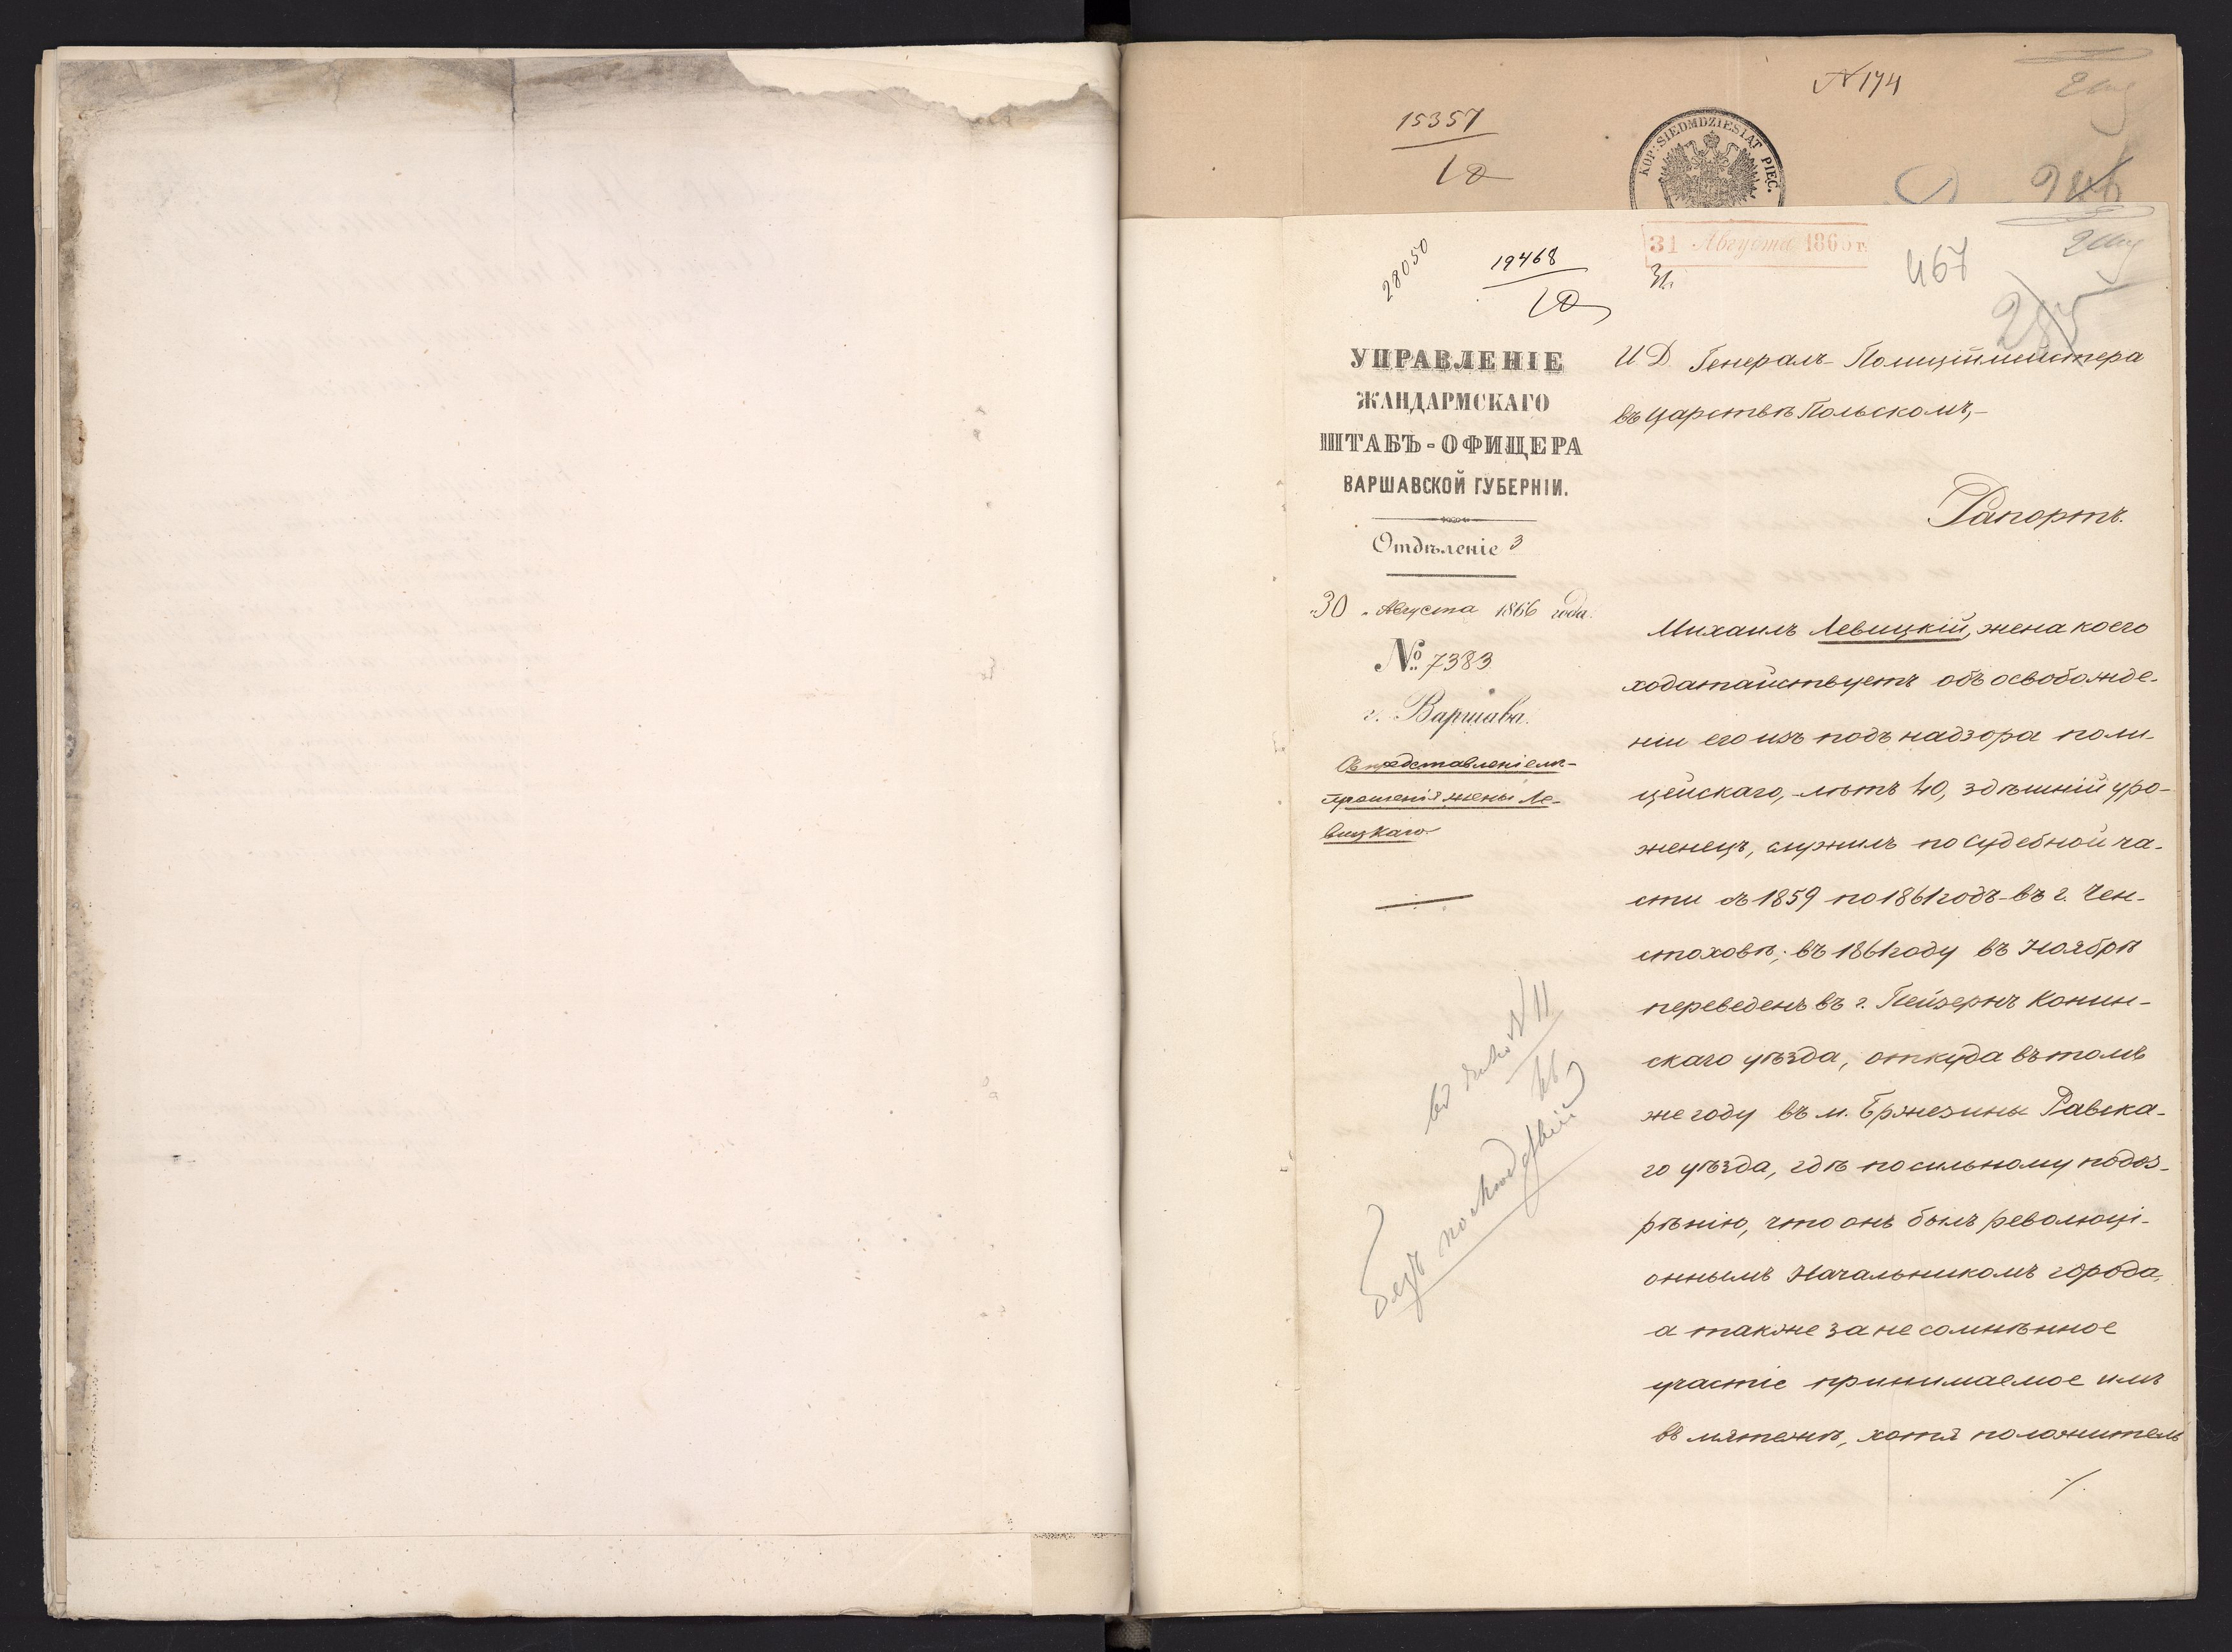 N 174
15357
10
KOP: SIEDMDZIESIĄT PIĘĆ.
31 Августа 1866 г.
31.
467
28050
19468
10
УПРАВЛЕНІЕ
ЖАНДАРМСКАГО
ШТАБЪ-ОФИЦЕРА
ВАРШАВСКОЙ ГУБЕРНІИ.
Отдѣленіе 3
"30" Августа 1866 года.
№ 7383
г. Варшава.
Съ представленіемъ
прошенія жены Ле-
вицкаго.
въ дѣло N 11
66
Безъ послѣдствій
И. Д. Генералъ-Полиціймейстера
въ Царствѣ Польскомъ,-
Рапортъ.
Михаилъ Левицкій, жена коего
ходатайствуетъ объ освобожде-
ніи его изъ подъ надзора поли-
цейскаго, лѣтъ 40, здѣшній уро-
женецъ, служилъ по судебной ча-
сти съ 1859 по 1861 годъ въ г. Чен-
стоховѣ; въ 1861 году въ Ноябрѣ
переведенъ въ г. Пейзернъ Конин-
скаго уѣзда, откуда въ томъ
же году въ м. Бржезины Равска-
го уѣзда, гдѣ по сильному подоз-
рѣнію, что онъ былъ революці-
оннымъ Начальникомъ города,
а также за не сомнѣнное
участіе принимаемое имъ
въ мятежѣ, хотя положитель